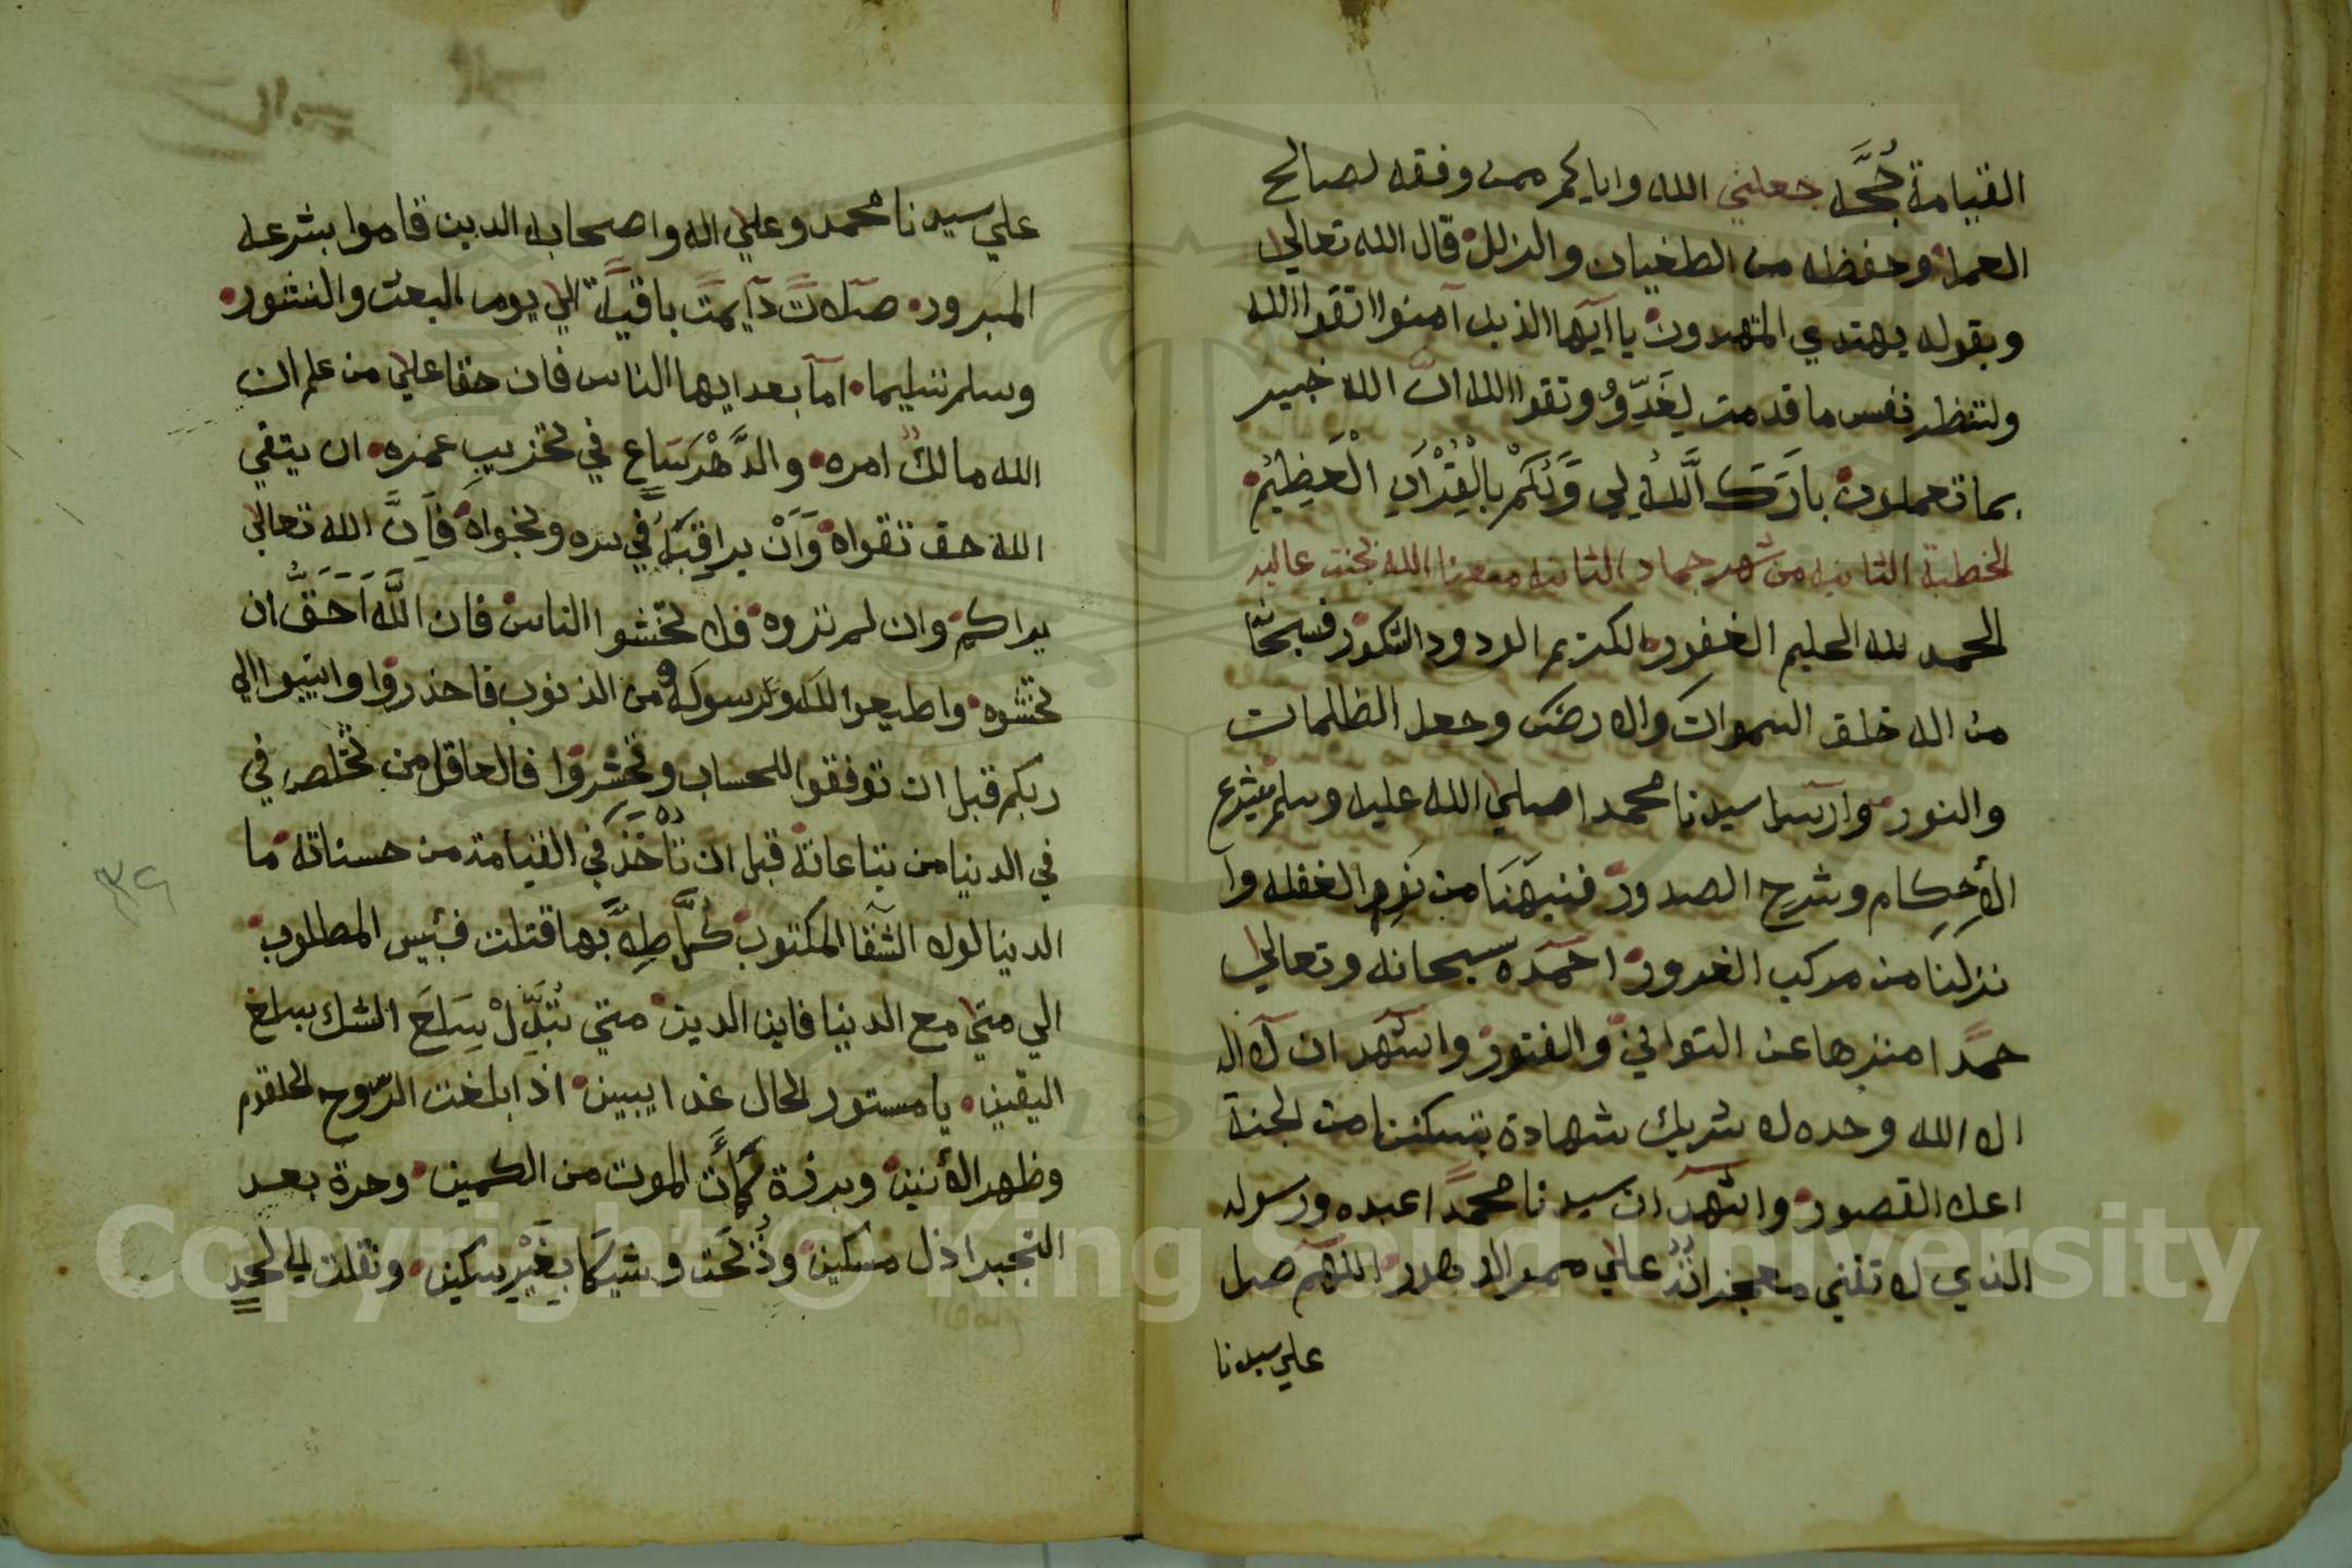 القيامة حُجَّه جعلني الله واياكم ممن وفقه لصالح
العمل وحفظه من الطغيان والزلل قال الله تعالى
وبقوله يهتدي المهتدون يا آيها الذين آمنوا اتقوا الله
ولتنظر نفس ما قدمت لِغَدٍ وتقوا الله ان الله خبير
بما تعملون بارَكَ اللَّهُ لي وَلَكُمْ بِالْقُرْآنِ الْعَظِيْمِ
الخطبة الثانيه من شهر جماد الثانيه منعنا الله بجنت عاليه
الحمد لله الحليم الغفور الكريم الودود الشكور فسبحانا
من اله خلق السموات والارض وجعل الظلمات
والنور وارسل سيدنا محمدا صلى الله عليه وسلم فشرع
الأحكام وشرح الصدور فنبهنا من نوم الغفله وا
نزلنا من مركب الغرور احمده سبحانه وتعالى
حمدا منزها عن التواني والفتور واشهد ان لا اله
الا الله وحده لا شريك شهادة تسكننا من الجنة
اعلا القصور واشهد ان سيدنا محمدا عبده ورسوله
الذي لا تفنى معجزاته على ممر الدهور اللهم صل
علي سيدنا
علي سيدنا محمد وعلي اله واصحابه الدين قاموا بشرعه
المبرور صلاتً دآيمتً باقيةً الي يوم البعث والنشور
وسلم تسليما اما بعد ايها الناس فان حقا علي من علم ان
الله مالك امره والدَّهْر سَاعٍ في تخريب عمره ان يتقي
الله حق تقواه وَاَنْ يراقبَهُ في سره ونجواه فَاِنَّ الله تعالى
يراكم وان لم تروه فلا تخشوا الناس فان اللَّه اَحَقُّ ان
تخشوه واطيعوا الله ورسوله ومن الذنوب فاحذروا وانيبوا الي
ربكم قبل ان توقفوا للحساب وتحشروا فالعاقل من تخلص في
في الدنيا من تباعاته قبل ان تأخذ في القيامة من حسناته ما
الدنيا لولا الشقا المكتوب كم طِلّابها قتلت فبئس المطلوب
الي متى مع الدنيا فاين الدين متى تُبَدِّلْ سِلَعَ الشك بسلع
اليقين يا مستور الحال غدا يبين اذا بلغت الروح الحلقوم
وظهر الأنين وبرزة كمأت الموت من الكمين وحرة بعد
التجبر اذل مسكين وذُبحت وشيكا بِغَيْر سكين ونقلت الي لحد